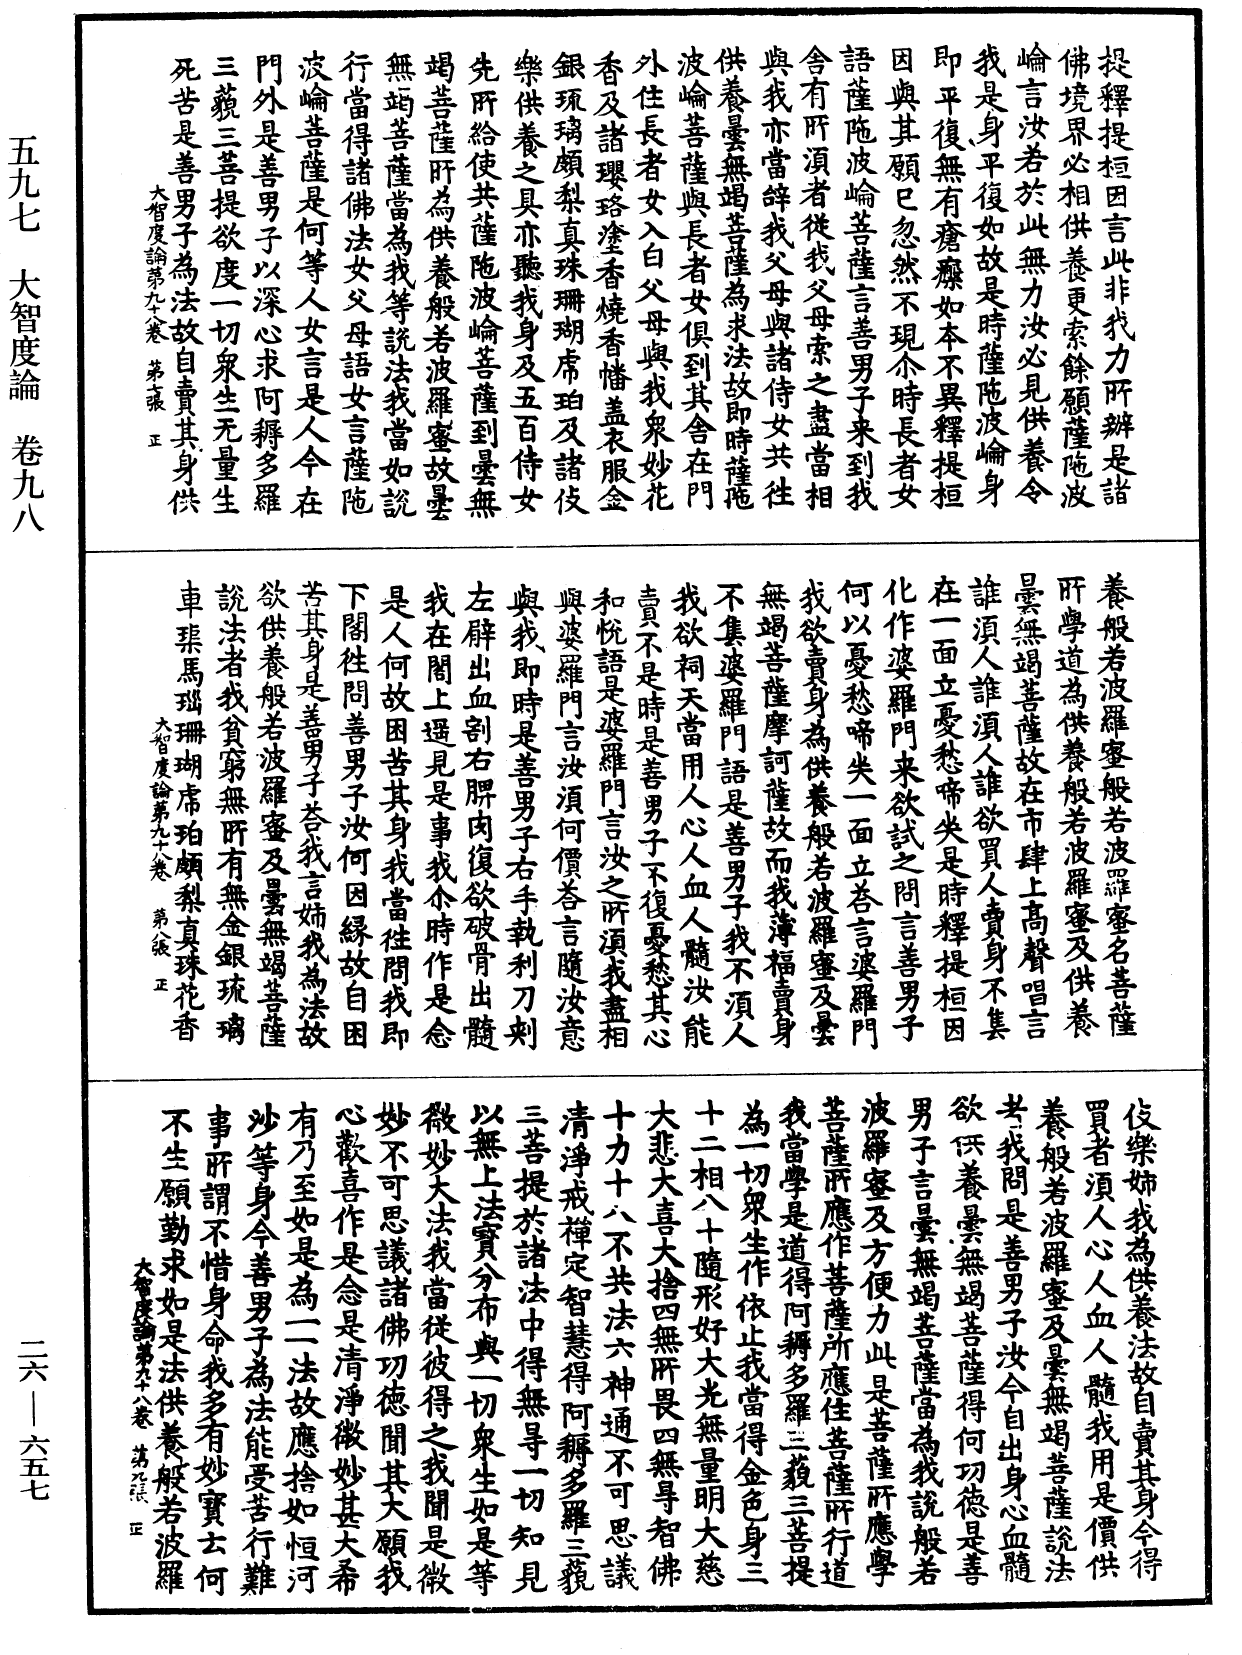 提釋提桓因言此非我力所辦是諸
佛境界必相供養更索餘願薩陁波
崘言汝若於此無力汝必見供養令
我是身平復如故是時薩陁波崘身
即平復無有瘡瘢如本不異釋提桓
因與其願已忽然不現尒時長者女
語薩陁波崘菩薩言善男子来到我
舎有所湏者從我父母索之盡當相
與我亦當辝我父母與諸侍女共往
供養曇無竭菩薩為求法故即時薩陁
波崘菩薩與長者女俱到其舎在門
外住長者女入白父母與我衆妙花
香及諸瓔珞塗香燒香幡盖衣服金
銀琉璃頗梨真珠珊瑚虎珀及諸伎
樂供養之具亦聽我身及五百侍女
先所給使共薩陁波崘菩薩到曇無
竭菩薩所為供養般若波羅蜜故曇
無竭菩薩當為我等說法我當如說
行當得諸佛法女父母語女言薩陁
波崘菩薩是何等人女言是人今在
門外是善男子以深心求阿耨多羅
三藐三菩提欲度一切衆生无量生
死苦是善男子為法故自賣其身供
大智度論第九十八卷 第七張 正
養般若波羅蜜般若波羅蜜名菩薩
所學道為供養般若波羅蜜及供養
曇無竭菩薩故在市肆上高聲唱言
誰湏人誰湏人誰欲買人賣身不集
在一面立憂愁啼哭是時釋提桓因
化作婆羅門来欲試之問言善男子
何以憂愁啼哭一面立荅言婆羅門
我欲賣身為供養般若波羅蜜及曇
無竭菩薩摩訶薩故而我薄福賣身
不集婆羅門語是善男子我不湏人
我欲祠天當用人心人血人髓汝能
賣不是時是善男子不復憂愁其心
和悅語是婆羅門言汝之所湏我盡相
與婆羅門言汝湏何價荅言隨汝意
與我即時是善男子右手執利刀刺
左臂出血割右髀肉復欲破骨出髓
我在閣上遥見是事我尒時作是念
是人何故困苦其身我當往問我即
下閣往問善男子汝何因緣故自困
苦其身是善男子荅我言姊我為法故
欲供養般若波羅蜜及曇無竭菩薩
說法者我貧窮無所有無金銀琉璃
車𤦲馬瑙珊瑚虎珀頗梨真珠花香
大智度論第九十八卷 第八張 正
伎樂姊我為供養法故自賣其身今得
買者湏人心人血人髓我用是價供
養般若波羅蜜及曇無竭菩薩說法
者我問是善男子汝今自出身心血髓
欲供養曇無竭菩薩得何功德是善
男子言曇無竭菩薩當為我說般若
波羅蜜及方便力此是菩薩所應學
菩薩所應作菩薩所應住菩薩所行道
我當學是道得阿耨多羅三藐三菩提
為一切衆生作依止我當得金色身三
十二相八十隨形好大光無量明大慈
大悲大喜大捨四無所畏四無㝵智佛
十力十八不共法六神通不可思議
清淨戒禪定智慧得阿耨多羅三藐
三菩提於諸法中得無㝵一切知見
以無上法寶分布與一切衆生如是等
微妙大法我當從彼得之我聞是微
妙不可思議諸佛功徳聞其大願我
心歡喜作是念是清淨微妙甚大希
有乃至如是為一一法故應捨如恒河
沙等身今善男子為法能受苦行難
事所謂不惜身命我多有妙寶云何
不生願勤求如是法供養般若波羅
大智度論第九十八卷 第九張 正
五九七 大智度論 卷九八
二六—六五七